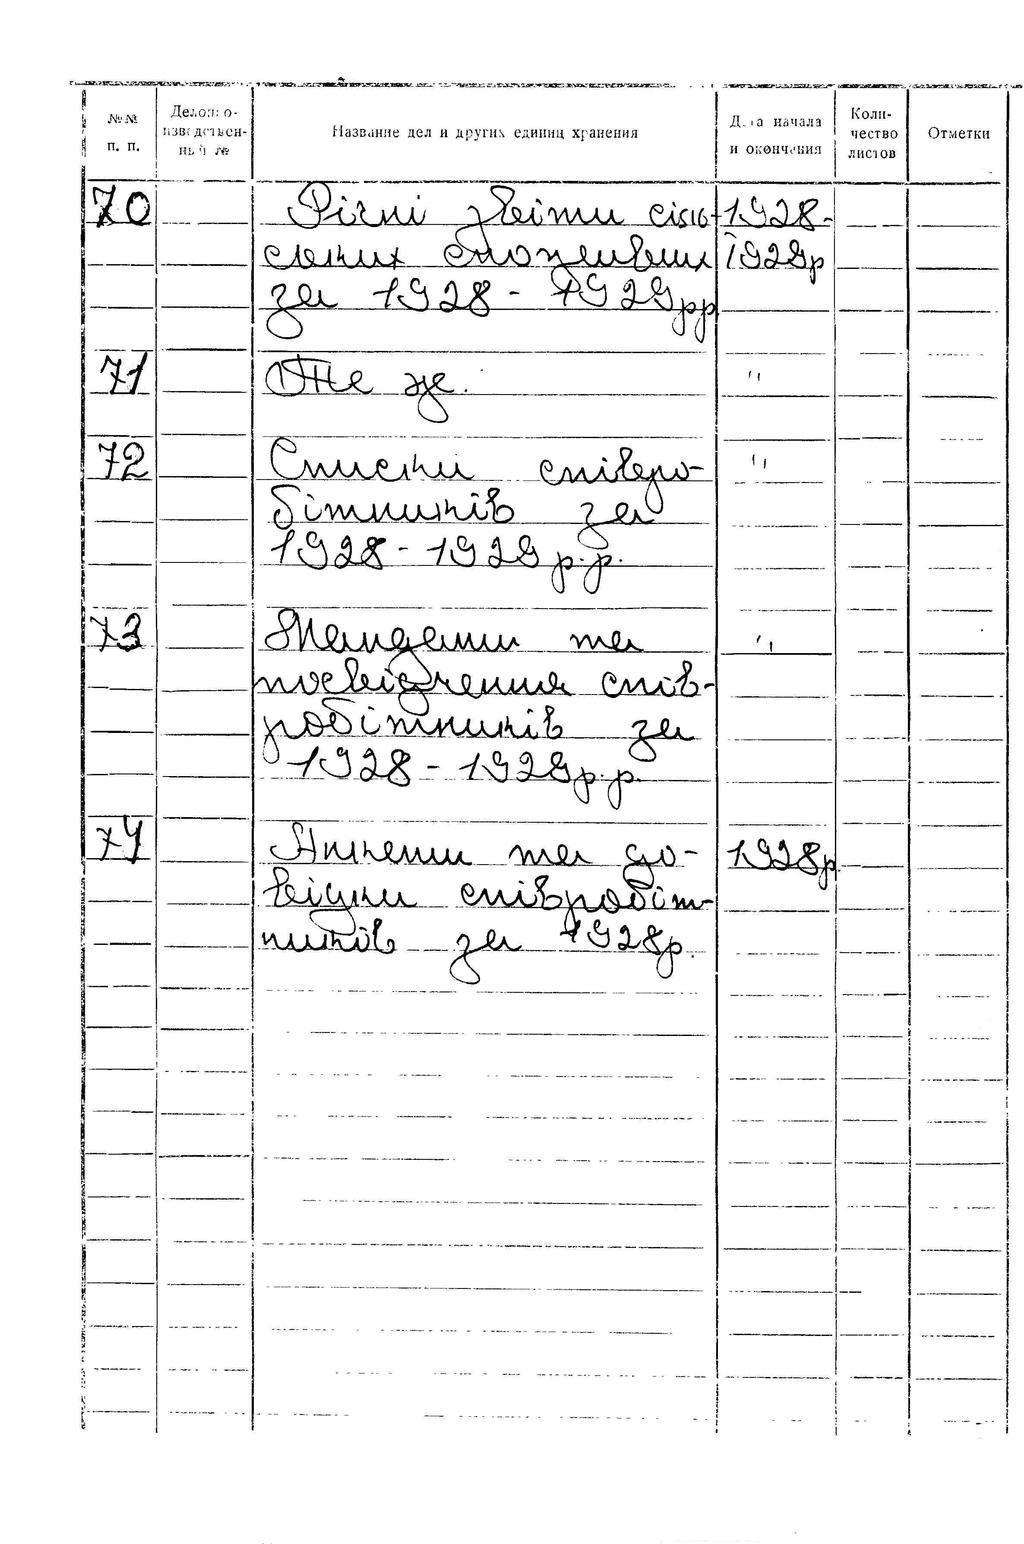 №№ п. п.
Делопро-
изводствен-
ный №
Название дел и других единиц хранения
Дата начала
и окончания
Коли-
чество
листов
Отметки
70 Річні звіти сільсь- 1928-
ських споживчих 1929р
за 1928 - 1929рр
71 Те же. "
72 Списки співро- "
бітників за
1928 - 1929 р.р.
73 Мандати та "
посвідчення спів-
робітників за
1928 - 1929р.р.
74 Анкети та до- 1928р.
відки співробіт-
ників за 1928р.